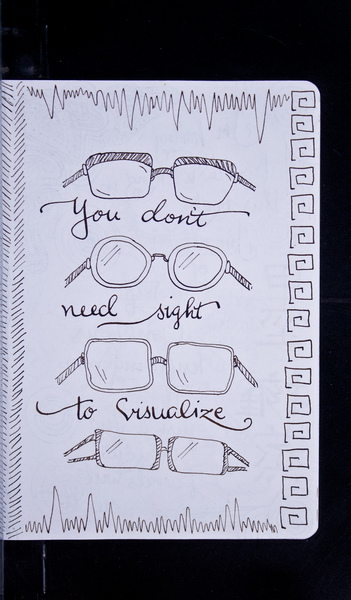 You don't
need sight
to visualize